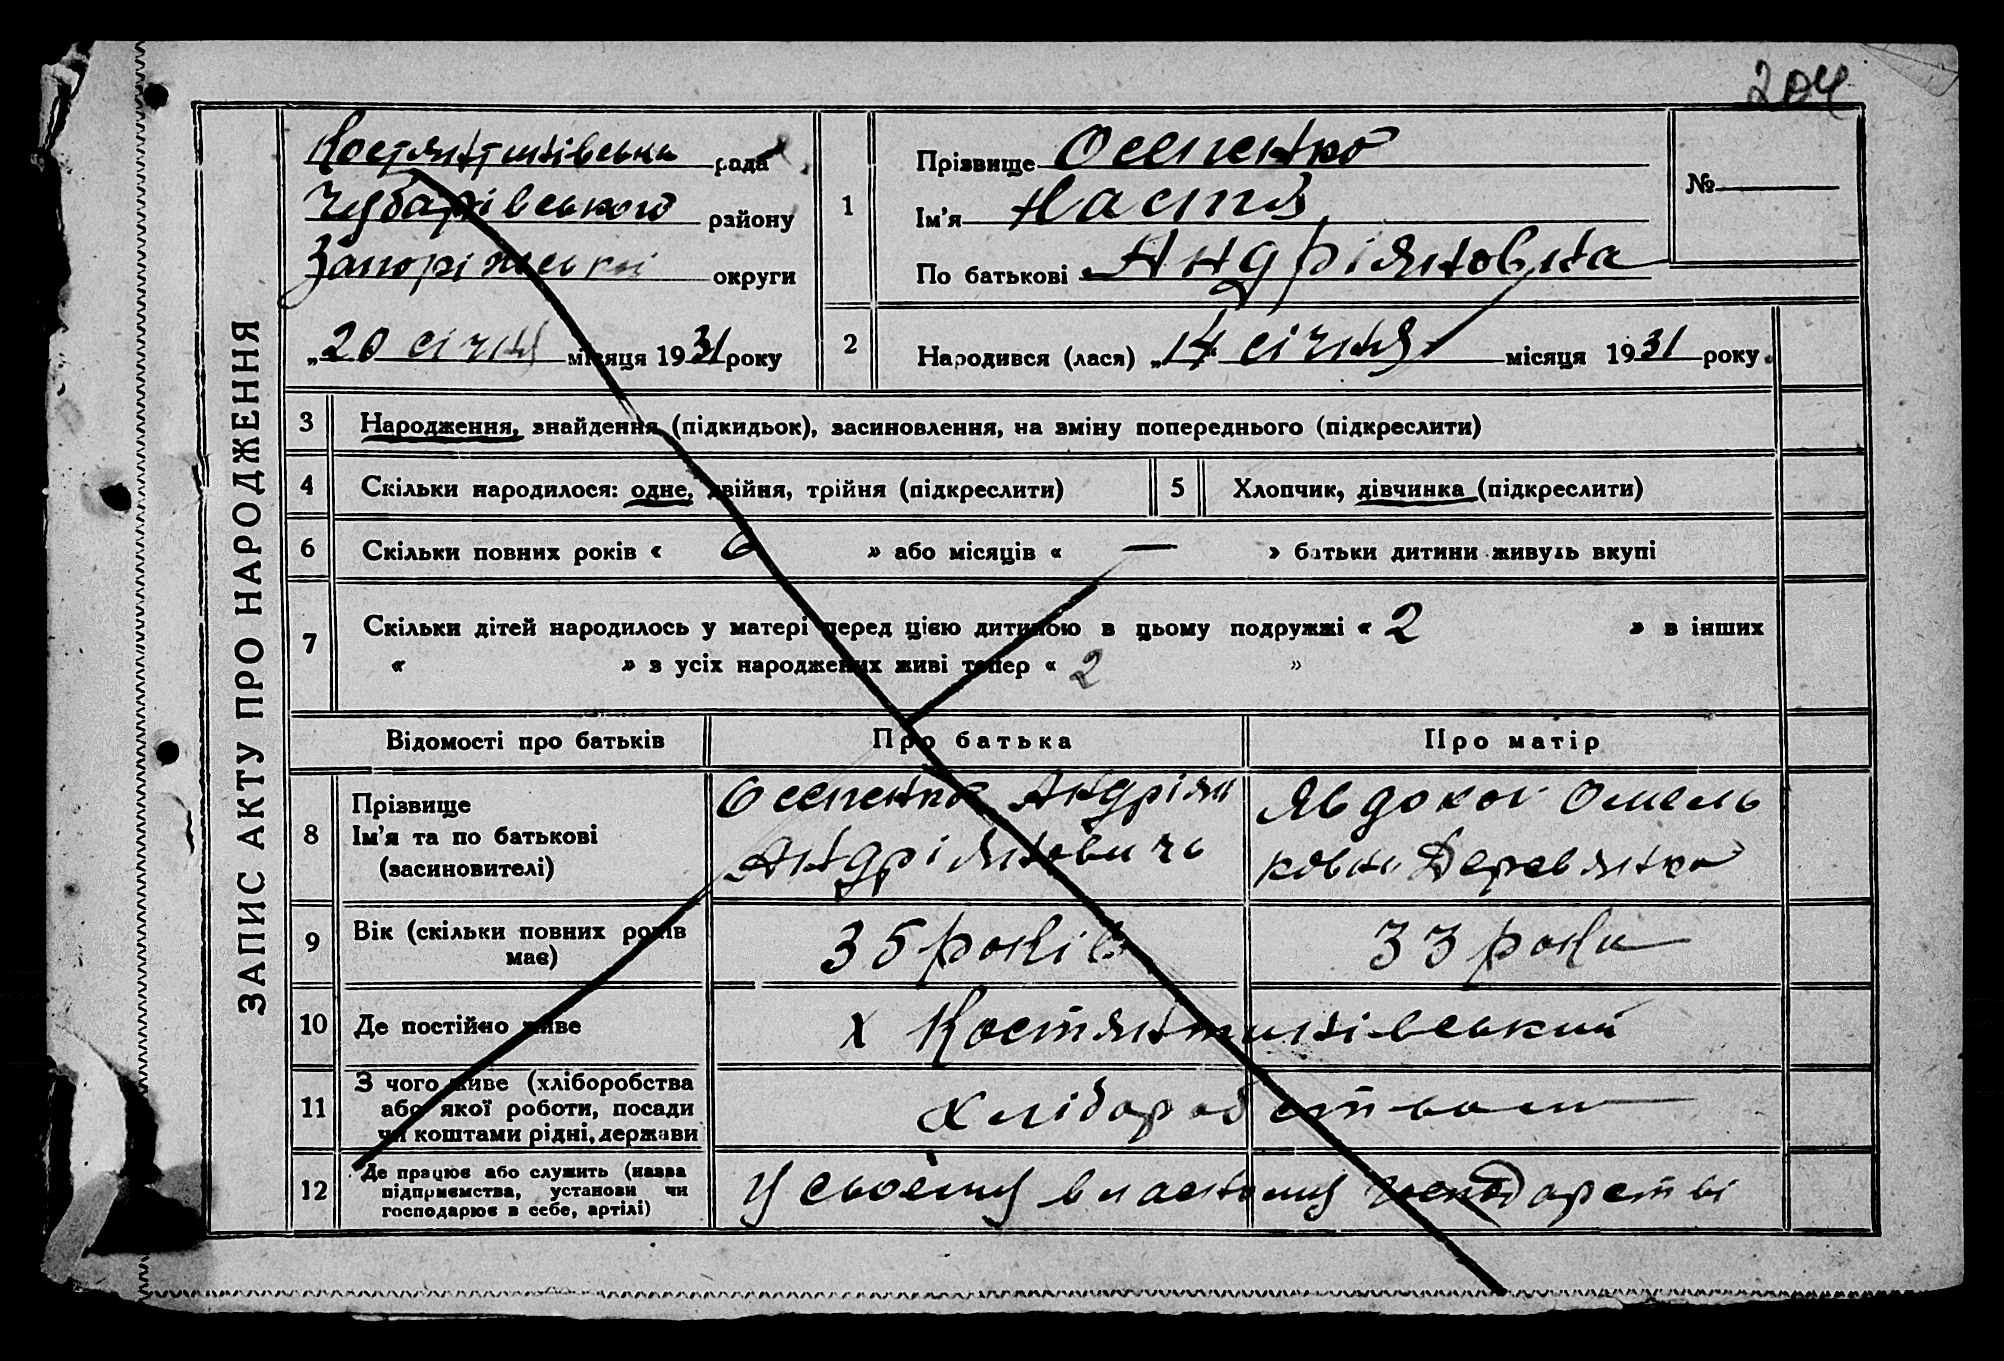 204
ЗАПИС АКТУ ПРО НАРОДЖЕННЯ
Костянтинівська рада
Чубарівського району
Запоріжської округи
„20 січня місяця 1931 року
1
Прізвище Осепенко
Ім'я Настя
По батькові Андріяновна
№
2
Народився (лася) „14 січня місяця 1931 року
3 Народження, знайдення (підкидьок), засиновлення, на зміну попереднього (підкреслити)
4 Скільки народилося: одне, двійня, трійня (підкреслити) 5 Хлопчик, дівчинка (підкреслити)
6 Скільки повних років « 6 » або місяців « — » батьки дитини живуть вкупі
7 Скільки дітей народилось у матері перед цією дитиною в цьому подружжі « 2 » в інших
« » з усіх народжених живі тепер « 2 »
Відомості про батьків Про батька Про матір
8 Прізвище
Ім'я та по батькові
(засиновителі)
Осепенко Андріян
Андріяновичь
Явдокия Омель
ковна Деревянко
9 Вік (скільки повних років
має)
35 років 33 роки
10 Де постійно живе х Костянтинівський
11 З чого живе (хліборобства
або якої роботи, посади
чи коштами рідні, держави
хліборобством
12 Де працює або служить (назва
підприємства, установи чи
господарює в себе, артілі)
У своєму власному господарстві